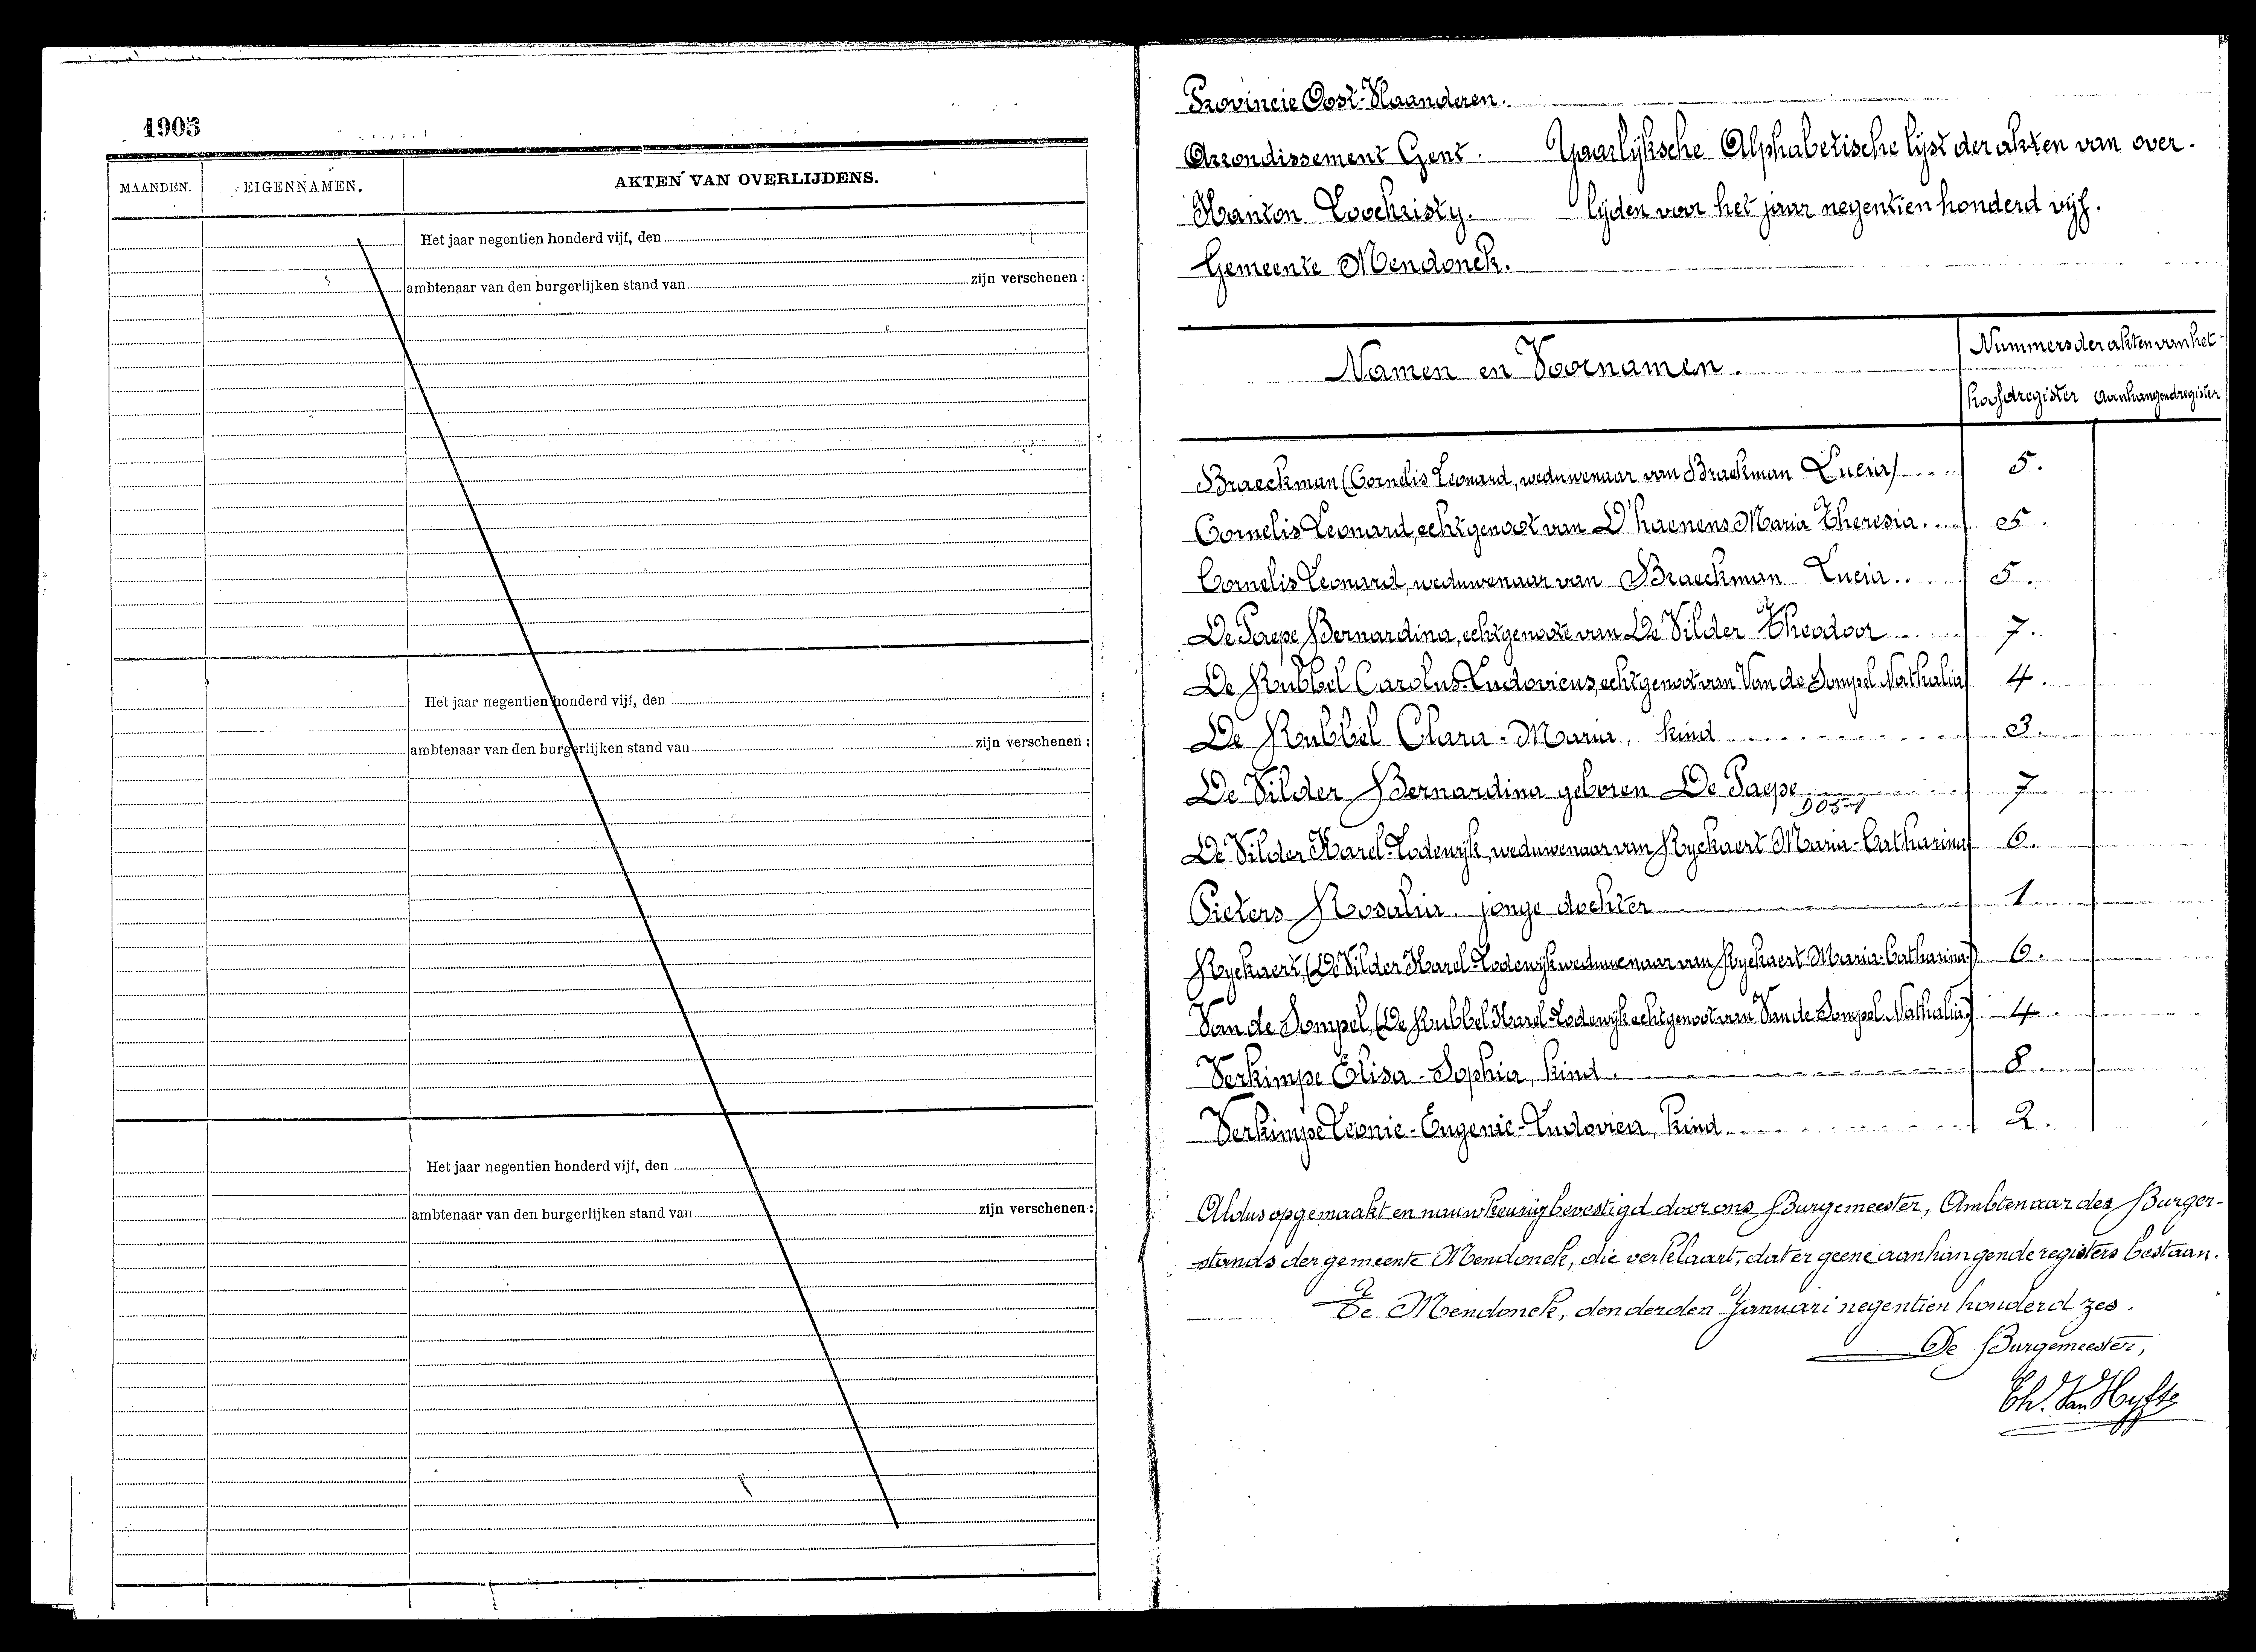 1905
MAANDEN. EIGENNAMEN. AKTEN VAN OVERLIJDENS.
Het jaar negentien honderd vijf, den
ambtenaar van den burgerlijken stand van zijn verschenen :
Het jaar negentien honderd vijf, den
ambtenaar van den burgerlijken stand van zijn verschenen :
Het jaar negentien honderd vijf, den
ambtenaar van den burgerlijken stand van zijn verschenen :
Provincie Oost-Vlaanderen.
Arrondissement Gent. Yaarlyksche Alphabetische lyst der akten van over-
Kanton Loochristy. lyden voor het jaar negentien honderd vyf.
Gemeente Mendonck.
Namen en Voornamen. Nummers der akten van het
hoofdregister Aanhangendregister
Braeckman (Cornelis Leonard, weduwenaar van Braeckman Lucia) 5.
Cornelis Leonard, echtgenoot van D'haenens Maria Theresia. 5.
Cornelis Leonard, weduwenaar van Braeckman Lucia. 5.
De Paepe Bernardina, echtgenoote van De Vilder Theodoor 7.
De Rubbel Carolus-Ludovicus, echtgenoot van Van de Sompel Nathalia 4.
De Rubbel Clara-Maria, kind 3.
De Vilder Bernardina geboren De Paepe 7
De Vilder Karel-Lodewyk, weduwenaar van Ryckaert Maria-Catharina 6.
Pieters Rosalia, jonge dochter 1.
Ryckaert, (De Vilder Karel-Lodewyk weduwenaar van Ryckaert Maria-Catharina) 6.
Van de Sompel, (De Rubbel Karel-Lodewyk echtgenoot van Van de Sompel Nathalia) 4.
Verkimpe Elisa-Sophia, kind. 8.
Verkimpe Leonie-Eugenie-Ludovica, kind. 2.
Aldus opgemaakt en nauwkeurig bevestigd door ons Burgemeester, Ambtenaar des Burger-
stands der gemeente Mendonck, die verklaart, dat er geene aanhangende registers bestaan.
Te Mendonck, den derden Januari negentien honderd zes.
De Burgemeester,
Ch. Van Hyfte